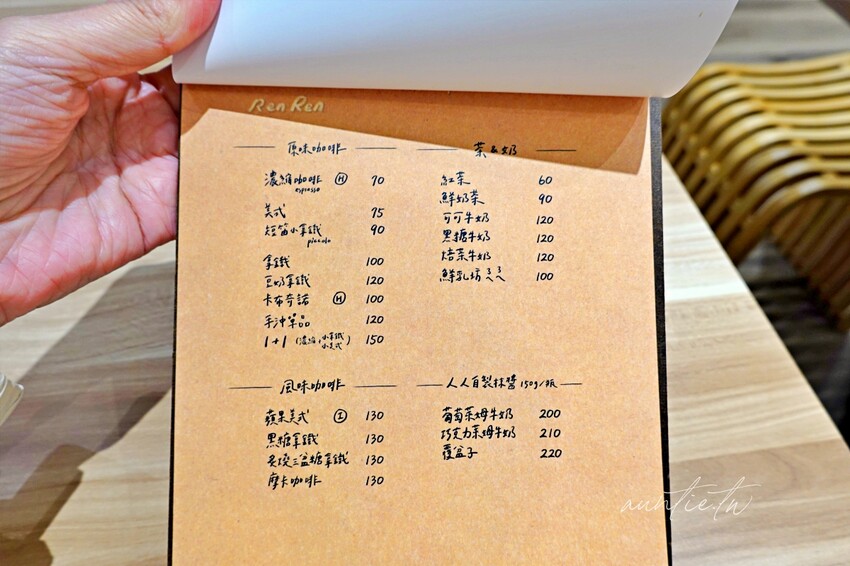 Ren Ren
原味咖啡
濃縮咖啡 Ⓗ 70
espresso
美式 75
短笛小拿鐵 90
piccolo
拿鐵 100
豆奶拿鐵 120
卡布奇諾 Ⓗ 100
手沖單品 120
1+1 (濃縮、小拿鐵 小美式) 150
茶&奶
紅茶 60
鮮奶茶 90
可可牛奶 120
黑糖牛奶 120
焙茶牛奶 120
鮮乳坊ろろ 100
風味咖啡
蘋果美式 Ⓘ 130
黑糖拿鐵 130
炙燒三盆糖拿鐵 130
摩卡咖啡 130
人人自製抹醬 150g/瓶
葡萄萊姆牛奶 200
巧克力萊姆牛奶 210
覆盆子 220
auntie.tw